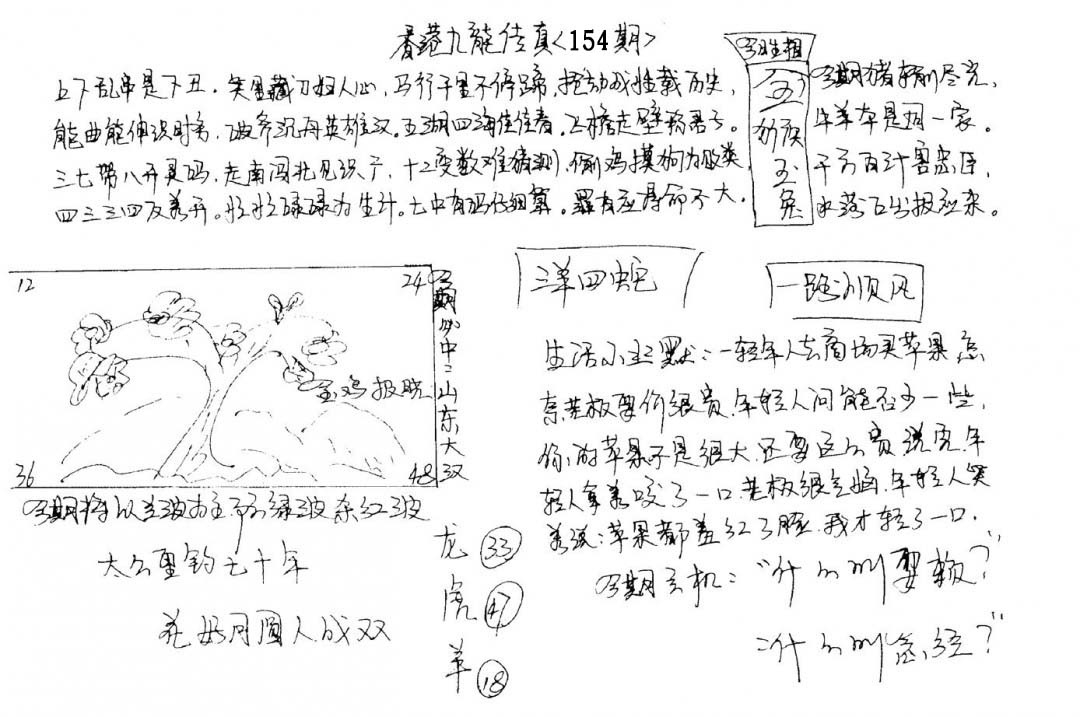 香港九龍传真<154期>
今期生相
上下乱串是下丑。笑里藏刀妇人心,马行千里不停蹄,
能曲能伸识时务,破斧沉舟英雄汉。五湖四海佳佳春。
三七带八开灵码,走南闯北见识广,十二变数难猜测,偷鸡摸狗为败类,
四三三四反着开。忙忙碌碌为生计。七中有码仔细算。罪有应得命不大。
今期猪
牛羊本是同一家。
千方百计害忠臣,
水落石出报应来。
玉兔
12
24
36
48
玉鸡报晓
今期必中二山东大汉
三羊四蛇
一路顺风
今期将以蓝波为主
绿波杂红波
太公垂钓七十年
花好月圆人成双
龙 33
虎 47
羊 18
生活小幽默:一轻年人去商场买苹果,
老板要价很贵,年轻人问能否少一些,
你的苹果不是很大,还要这么贵,说完,年
轻人拿着咬了一口,老板很气恼,年轻人笑
着说:苹果都羞红了脸,我才轻了一口.
今期玄机:"什么叫耍赖?"
"什么叫